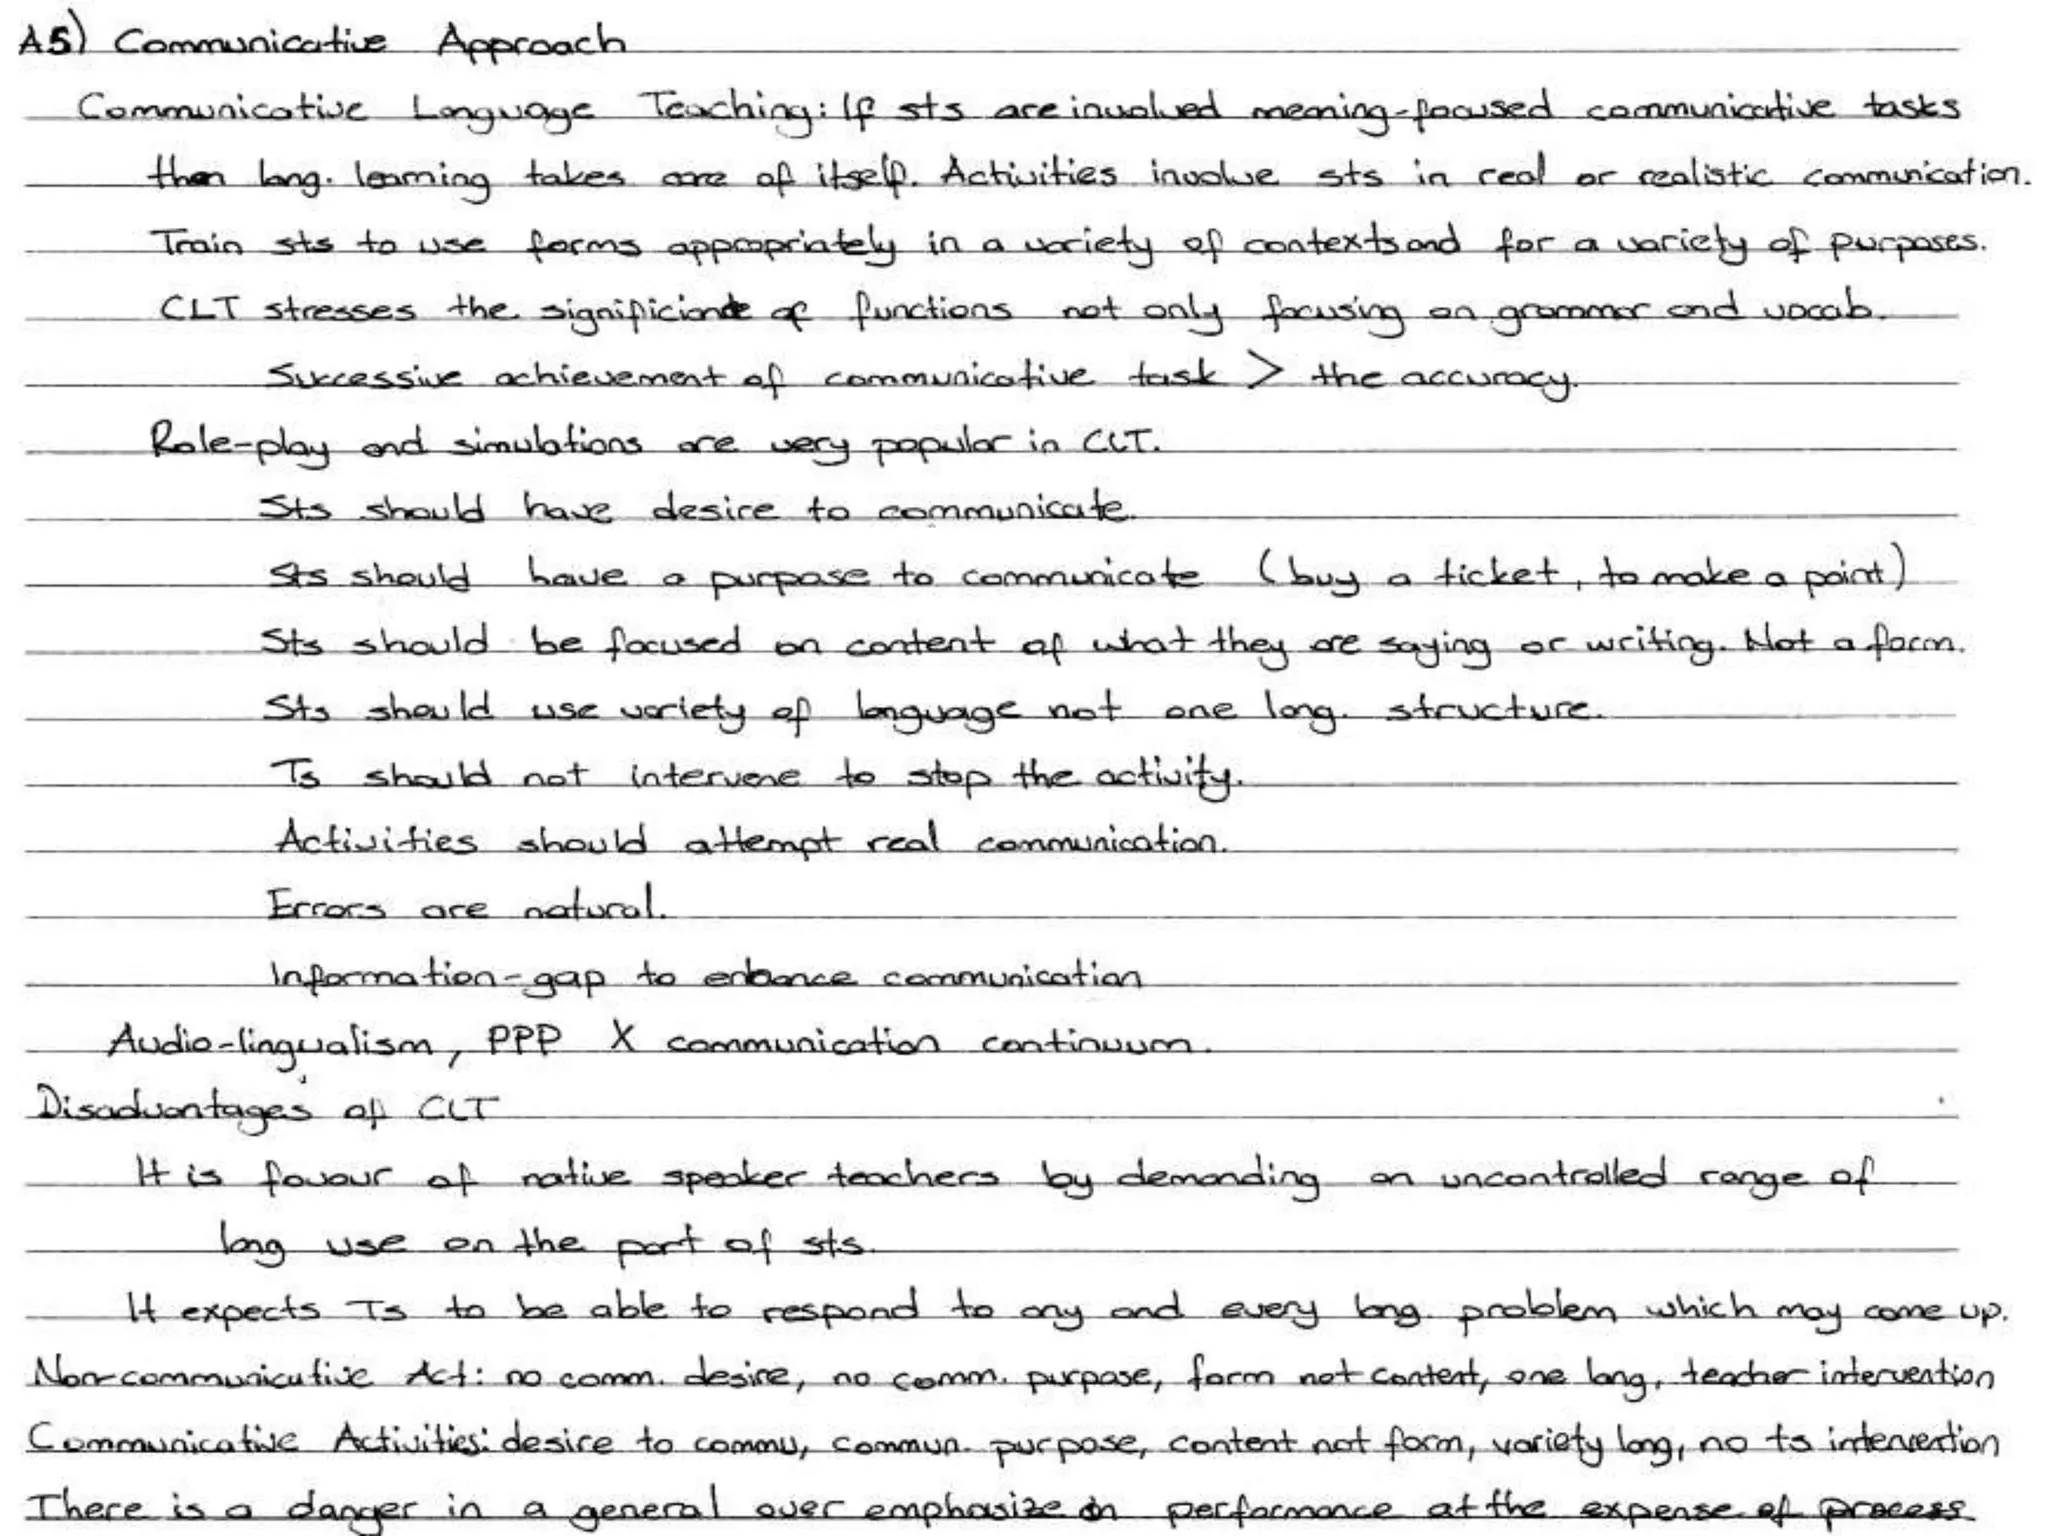 A5) Communicative Approach
Communicative Language Teaching: If sts are involved meaning-focused communicative tasks
then lang. learning takes care of itself. Activities involve sts in real or realistic communication.
Train sts to use forms appropriately in a variety of contexts and for a variety of purposes.
CLT stresses the significiante of functions not only focusing on grammar and vocab.
Successive achievement of communicative task > the accuracy.
Role-play and simulations are very popular in CLT.
Sts should have desire to communicate.
Sts should have a purpose to communicate (buy a ticket, to make a point)
Sts should be focused on content of what they are saying or writing. Not a form.
Sts should use variety of language not one lang. structure.
Ts should not intervene to stop the activity.
Activities should attempt real communication.
Errors are natural.
Information-gap to enhance communication
Audio-lingualism, PPP X communication continuum.
Disadvantages of CLT
It is favour of native speaker teachers by demanding an uncontrolled range of
lang use on the part of sts.
It expects Ts to be able to respond to any and every lang. problem which may come up.
Non-communicative Act: no comm. desire, no comm. purpose, form not content, one lang, teacher intervention
Communicative Activities: desire to commu, commun. purpose, content not form, variety lang, no ts intervention
There is a danger in a general over emphasize on performance at the expense of process.